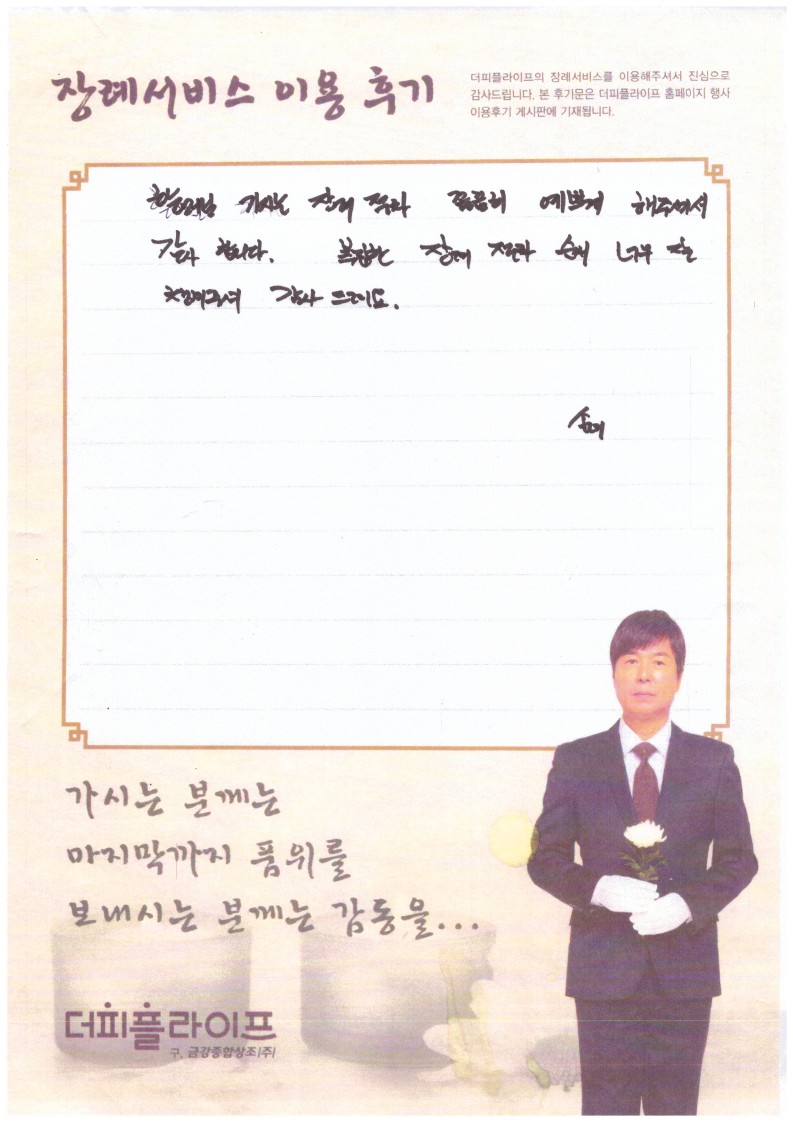 장례서비스 이용 후기
더피플라이프의 장례서비스를 이용해주셔서 진심으로
감사드립니다. 본 후기문은 더피플라이프 홈페이지 행사
이용후기 게시판에 기재됩니다.
할머님 가시는 장례 절차 꼼꼼히 예쁘게 해주셔서
감사 합니다. 복잡한 장례 절차 너무 잘
챙겨주셔 감사 드려요.
가시는 분께는
마지막까지 품위를
보내시는 분께는 감동을...
더피플라이프
구, 금강종합상조(주)